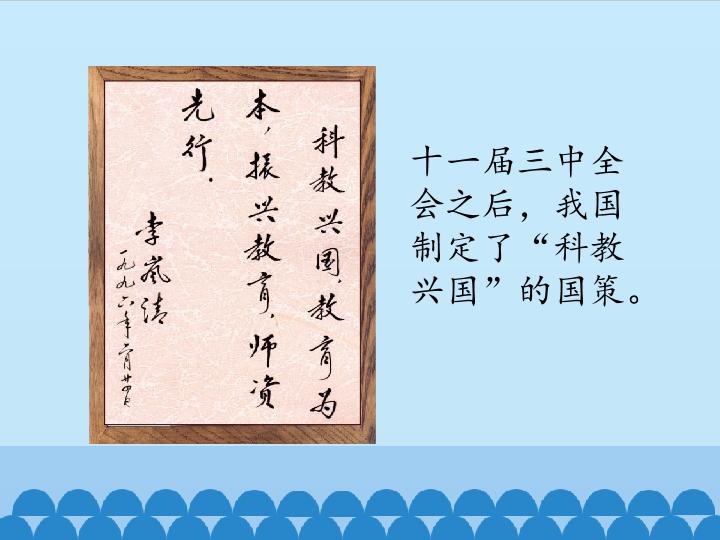 科教兴国,教育为
本,振兴教育,师资
先行.
李岚清
一九九六年二月廿四日
十一届三中全
会之后，我国
制定了“科教
兴国”的国策。